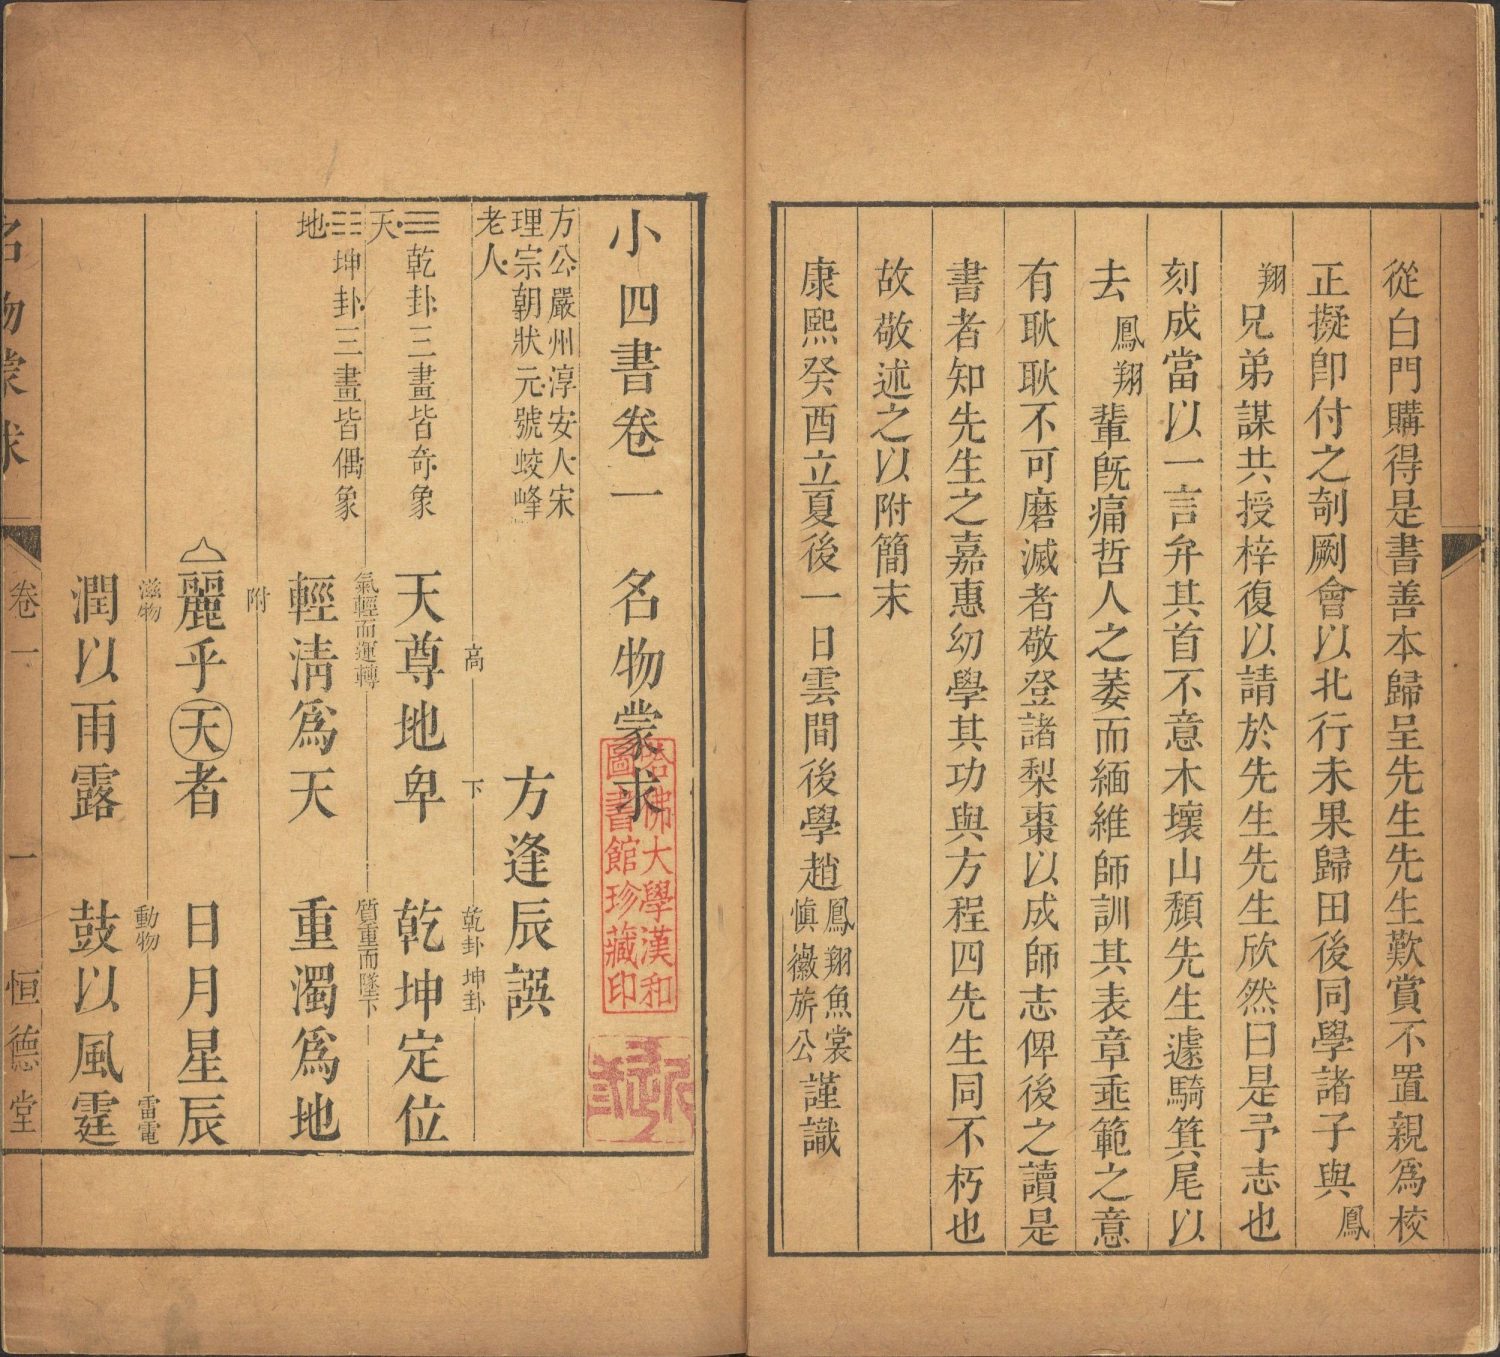 從白門購得是書善本歸呈先生先生歎賞不置親爲校
正擬卽付之剞劂會以北行未果歸田後同學諸子與鳳
翔兄弟謀共授梓復以請於先生先生欣然曰是予志也
刻成當以一言弁其首不意木壞山頹先生遽騎箕尾以
去鳳翔輩旣痛哲人之萎而緬維師訓其表章垂範之意
有耿耿不可磨滅者敬登諸梨棗以成師志俾後之讀是
書者知先生之嘉惠幼學其功與方程四先生同不朽也
故敬述之以附簡末
康熙癸酉立夏後一日雲間後學趙鳳翔魚裳愼徽旂公謹識
小四書卷一 名物蒙求
哈佛大學漢和
圖書館珍藏印
方公嚴州淳安人宋
理宗朝狀元號蛟峰
老人
方逢辰譔
高 下 乾卦坤卦
☰乾卦三畫皆奇象
天
天尊地卑 乾坤定位
氣輕而運轉 質重而墜下
☷坤卦三畫皆偶象
地
輕清爲天 重濁爲地
附
麗乎天者 日月星辰
滋物 動物 雷電
潤以雨露 鼓以風霆
名物蒙求 卷一 一 恒德堂